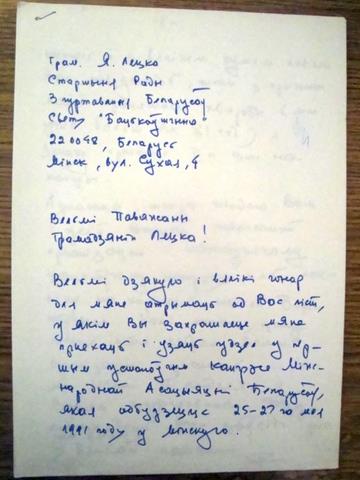 Грам. Я. Лецко
Старшыня Рады
Згуртавання Беларусаў
Свету "Бацькаўшчына"
220048, Беларусь
Мінск, вул. Сухая, 4
Вельмі Паважаны
Грамадзянін Лецко!
Вельмі дзякую і вялікі гонар
для мяне атрымаць ад Вас ліст,
у якім Вы запрашаеце мяне
прыехаць і узяць удзел у пер-
шым устаноўчым кангрэсе Між-
народнай Асацыяцыі Беларусаў,
якая адбудзецца 25-27 го мая
1991 году у